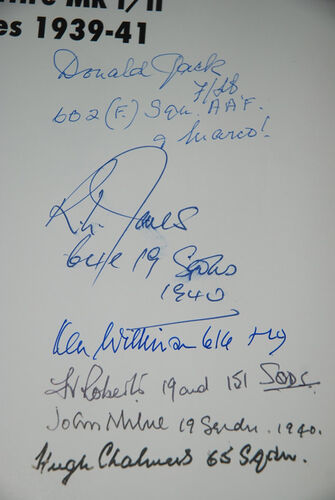 Mk I/II
es 1939-41
Donald Jack
F/Lt
602 (F.) Sqn. A.A.F.
Marco!
R.L. Jones
64 & 19 Sqdns
1940
Ken Wilkinson 616 + 19
L. Roberts 19 and 151 Sqds.
John Milne 19 Sqrdn. 1940.
Hugh Chalmers 65 Sqdn.